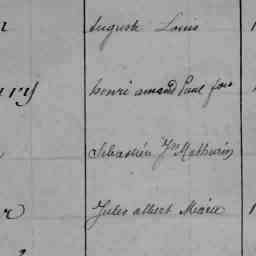 Auguste Louis
henri amand Paul fois
Sébastien Jn Mathurin
Jules albert Marie